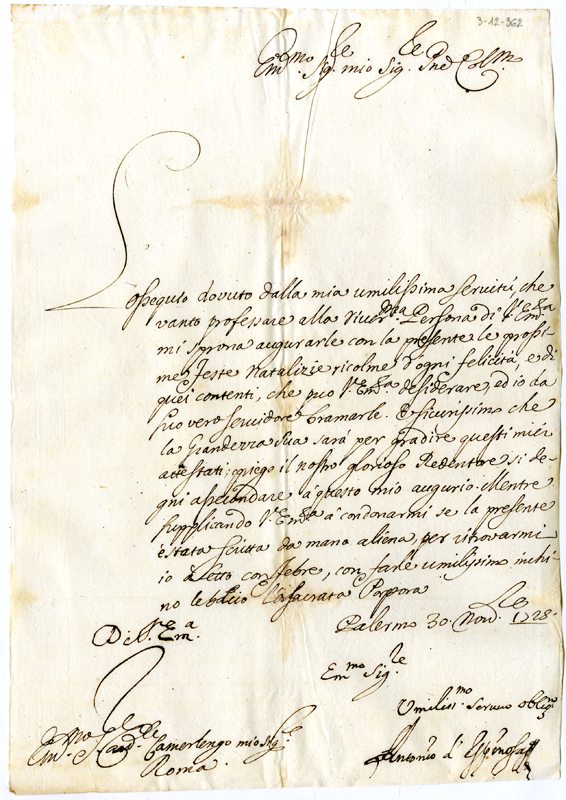 3-12-362
Em.mo Sig.re mio Sig.re Pne Col.mo
L'ossequio dovuto dalla mia umilissima servitù, che
vanto professare alla River.ma Persona di V.ra Em.za
mi sprona augurarle con la presente le prossi-
me feste Natalizie ricolme d'ogni felicità, e di
quei contenti, che può V.ra Em.za desiderare, ed io da
suo vero servidore bramarle. E sicurissimo che
la Grandezza Sua sarà per gradire questi miei
attestati; priego il nostro glorioso Redentore si de-
gni asecondare à questo mio augurio. Mentre
supplicando V.ra Em.za à condonarmi se la presente
è stata scritta da mano aliena, per ritrovarmi
io à letto con febre, con farle umilissimo inchi-
no le bacio la sacrata Porpora
Palermo 30. Nov.re 1728.
Di V.ra Em.a
Em.mo Sig.re
Umiliss.mo servuo oblig.mo
Em.mo Sig.re Card.le Camerlengo mio Sig.re
Roma.
Antonio d'